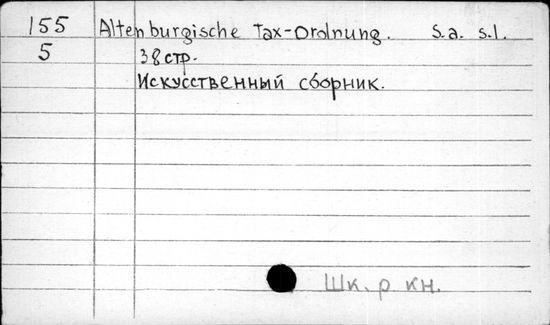 155 Altenburgische Tax-Ordnung. S.a. s.l.
5 38 стр.
Искусственный сборник.
Шк. р кн.